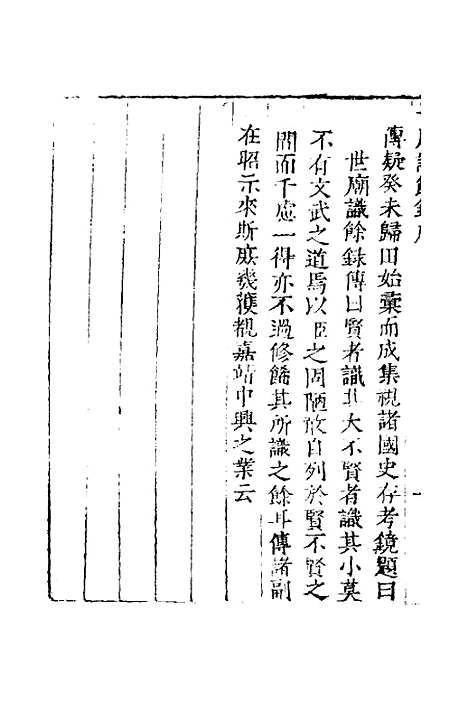 傳疑癸未歸田始彙而成集視諸國史存考鏡題曰
世廟識餘錄傳曰賢者識其大不賢者識其小莫
不有文武之道焉以臣之固陋敢自列於賢不賢之
間而千慮一得亦不過修餙其所識之餘耳傳諸副
在昭示來斯庶幾獲覩嘉靖中興之業云